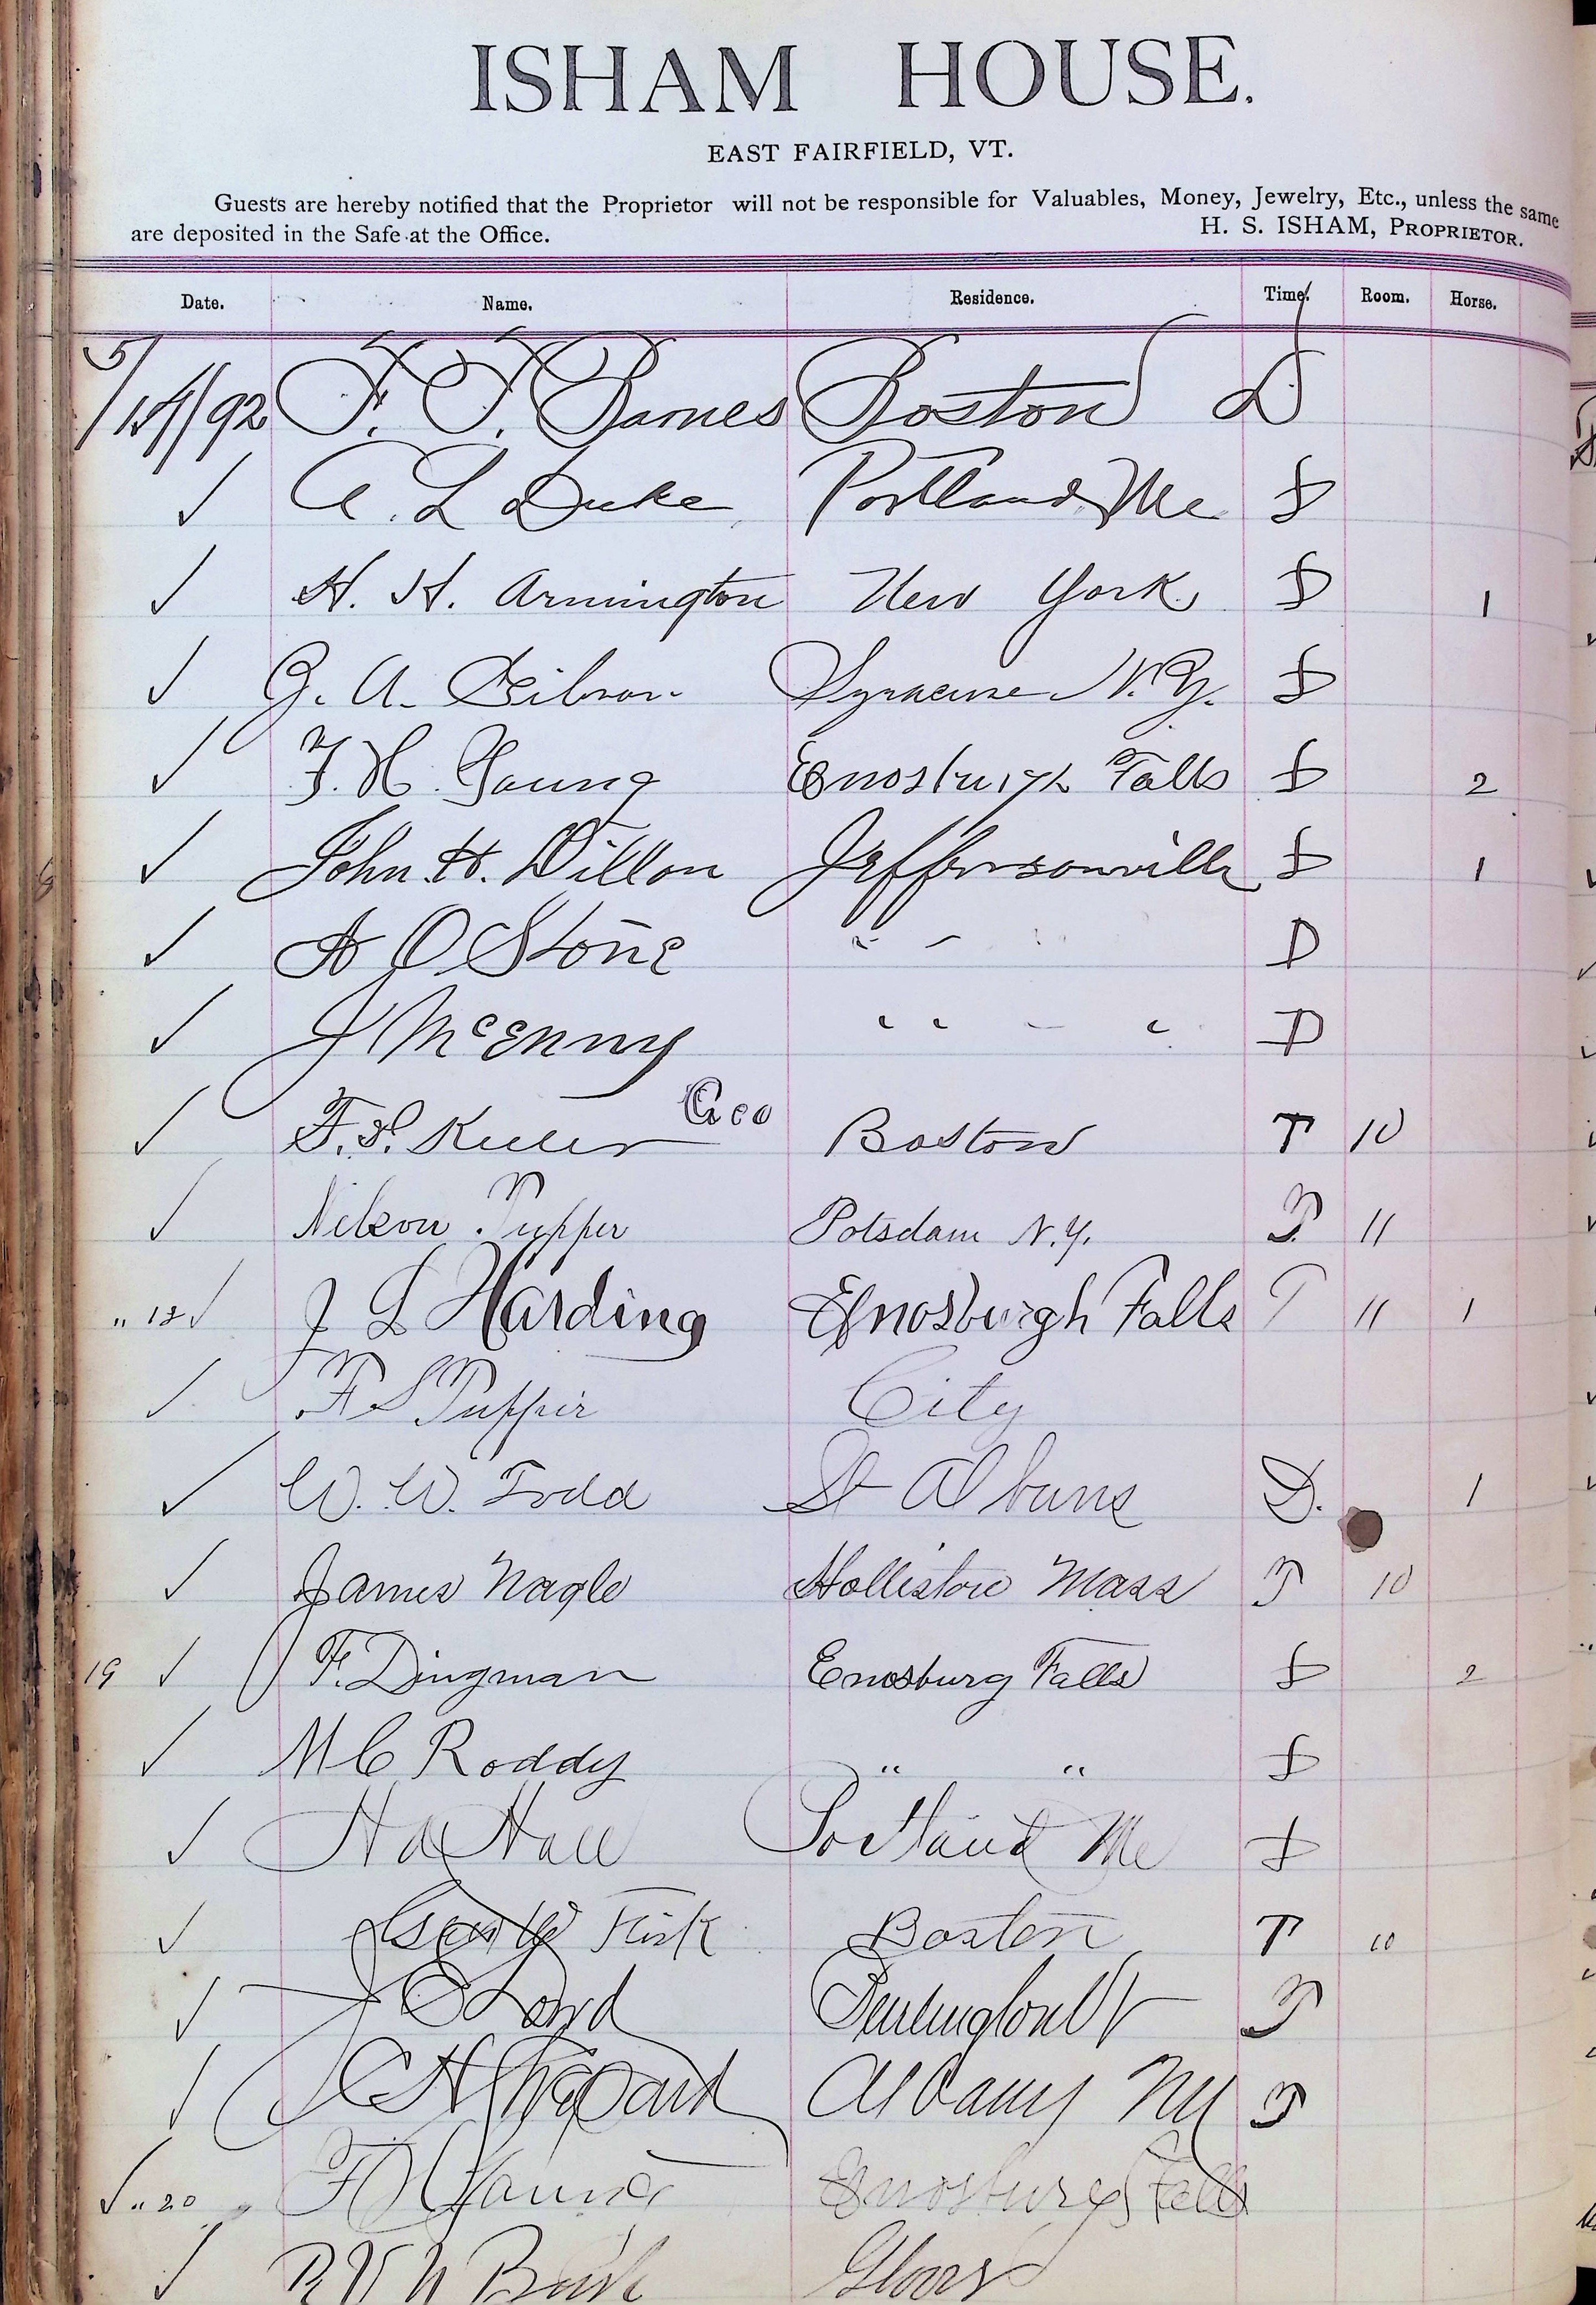 ISHAM HOUSE.
EAST FAIRFIELD, VT.
Guests are hereby notified that the Proprietor will not be responsible for Valuables, Money, Jewelry, Etc., unless the same
are deposited in the Safe at the Office. H. S. ISHAM, PROPRIETOR.
Date. Name. Residence. Time. Room. Horse.
5/17/92 F. F. Barnes Boston D
✓ A. L Duke Portland Me S
✓ H. H. Armington New York S 1
✓ G. A. Gibson Syracuse N.Y. S
✓ F. H. Young Enosburgh Falls S 2
✓ John H. Dillon Jeffersonville S 1
✓ A O Stone " " D
✓ J McEnny " " " " D
✓ F. S. Keeler Geo Boston T 10
✓ Nelson Tupper Potsdam N.Y. T 11
" 18 ✓ J L Harding Enosburgh Falls T 11 1
✓ F S Tupper City
✓ W. W. Todd St Albans D. 1
✓ James Nagle Holliston Mass T 10
19 ✓ F. Dingman Enosburg Falls S 2
✓ M C Roddy " " S
✓ H A Hall Portland Me S
✓ Fisk Boston T 10
✓ Lord Burlington Vt T
✓ C H Albany NY T
✓ " 20 F H Enosburg Falls
✓